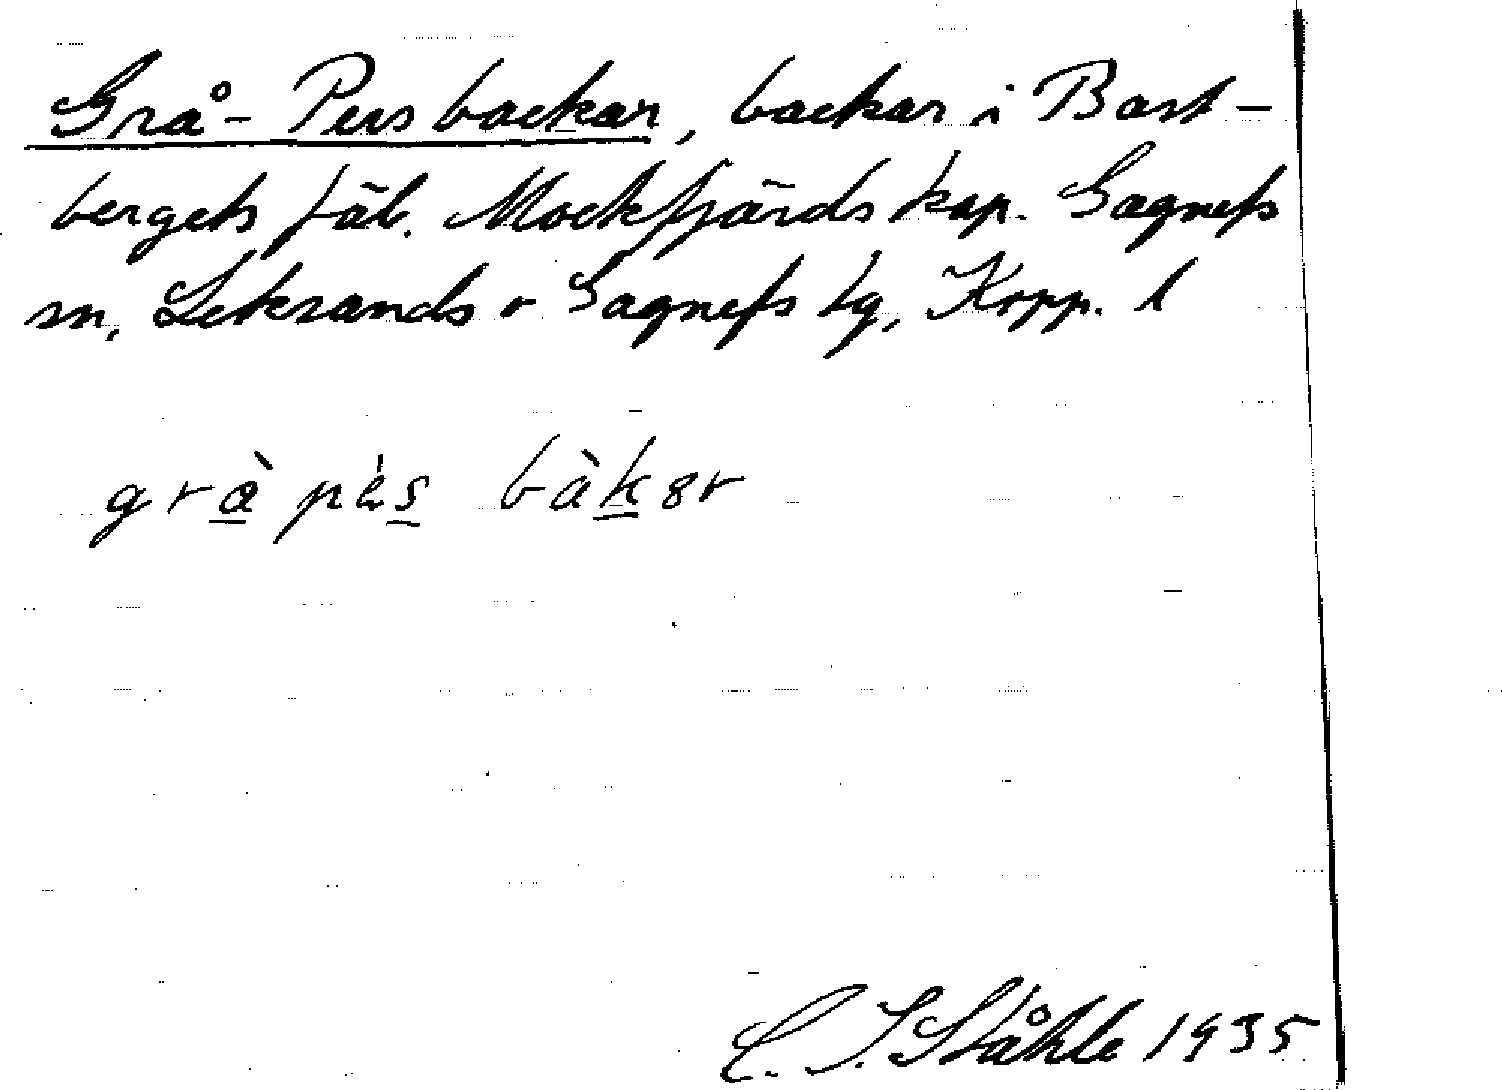 Grå-Pers backar, backar i Bast-
bergets fäb. Mockfjärds kap. Gagnefs
sn, Leksands o Gagnefs tg, Kopp. l
grà pès bàkər
C. I. Ståhle 1935